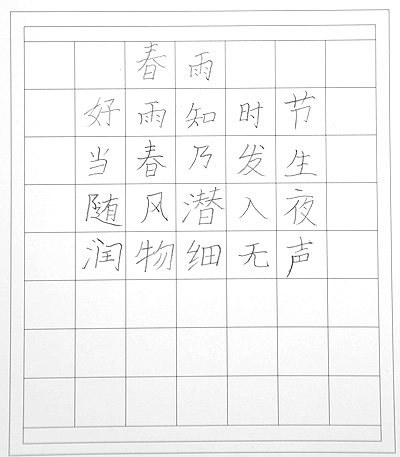 春雨
好雨知时节
当春乃发生
随风潜入夜
润物细无声